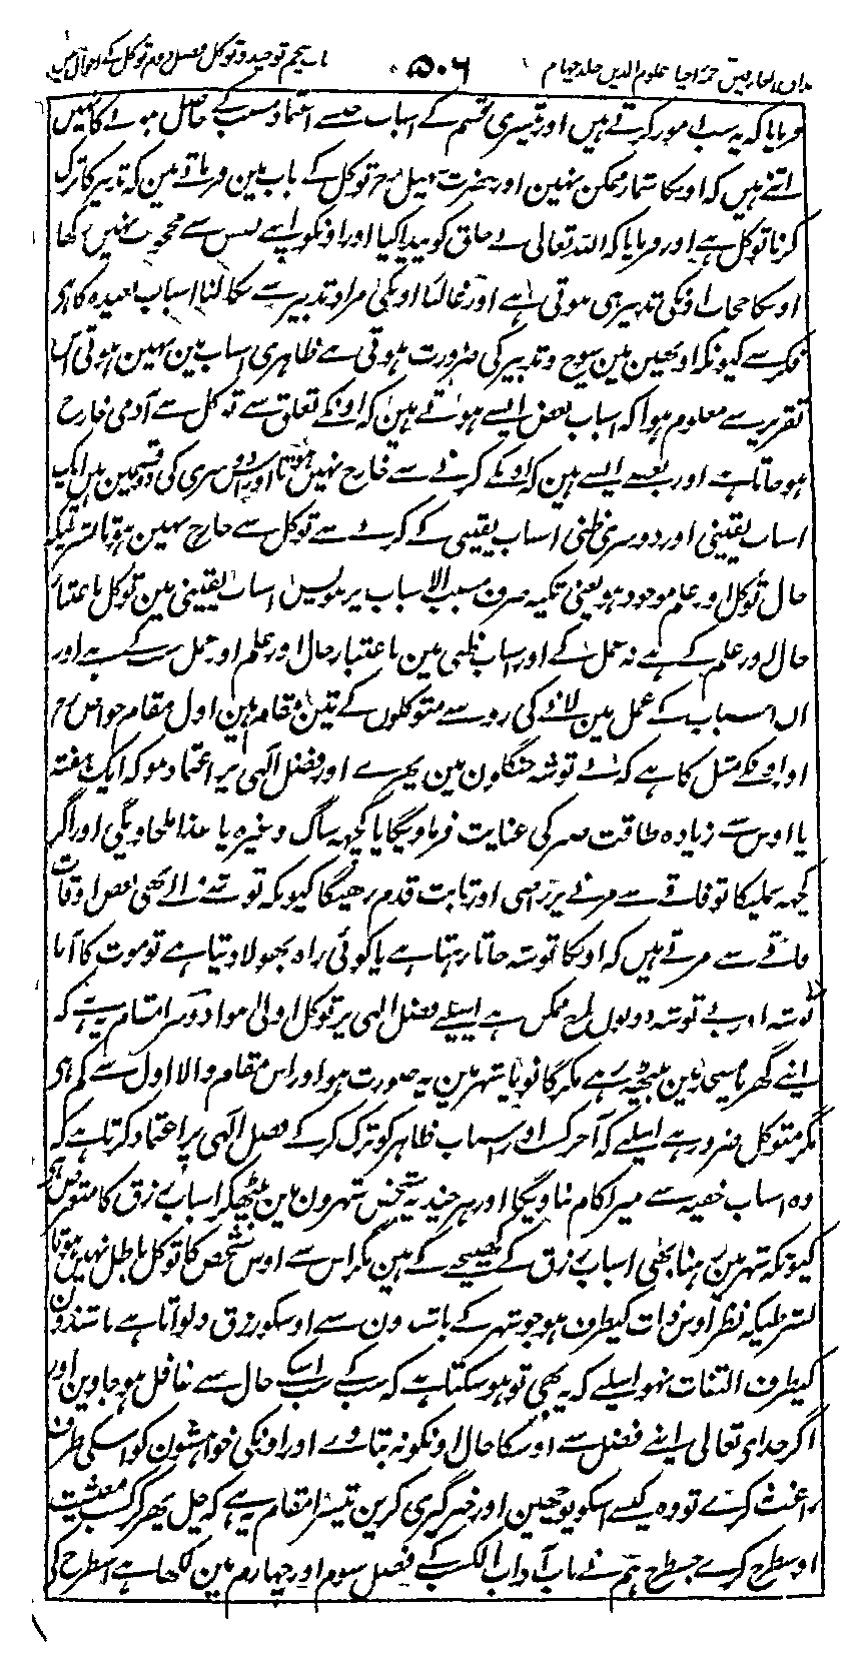 مذاق العارفین ترجمہ احیاء علوم الدین جلد چہارم
۵۰۶
باب پنجم توحید و توکل فصل دوم توکل کے احوال میں
فرمایا کہ یہ سب امور کرتے ہیں اور تیسری قسم کے اسباب جنسے اعتماد مسبب کے حاصل ہونے کا نہیں
اتنے ہیں کہ اونکا شمار ممکن نہین اور حضرت سہیل رح توکل کے باب مین فرماتے مین کہ تدبیر کا ترک
کرنا توکل ہے اور فرمایا کہ اللہ تعالی نے خلق کو پیدا کیا اور اونکو اپنے نفس سے محجوب نہیں رکھا
اونکا حجاب اونکی تدبیر ہی ہوتی ہے اور غالبا اونکی مراد تدبیر سے نکالنا اسباب بعیدہ کا ہی
فکر سے کیونکہ اونھین مین سوچ و تدبیر کی ضرورت ہوتی ہے ظاہری اسباب مین نہین ہوتی اس
تقریر سے معلوم ہوا کہ اسباب بعض ایسے ہوتے ہین کہ اونکے تعلق سے توکل سے آدمی خارج
ہو جاتا ہے اور بعضے ایسے ہین کہ اونکے کرنے سے خارج نہیں ہوتا اور اس دوسری کی دو قسمین ہیں ایک
اسباب یقینی اور دوسری ظنی اسباب یقینی کے کرنے سے توکل سے خارج نہین ہوتا بشرطیکہ
حال توکل اور علم موجود ہو یعنی تکیہ صرف مسبب الاسباب پر ہو پس اسباب یقینی مین توکل باعتبار
حال اور علم کے ہے نہ عمل کے اور اسباب ظنی مین باعتبار حال اور علم اور عمل سب کے ہے اور
ان اسباب کے عمل مین لانے کی رو سے متوکلوں کے تین مقام ہین اول مقام خواص رح
اور اونکے مثل کا ہے کہ بے توشہ جنگلون مین پھرے اور فضل الٓہی پر اعتماد ہو کہ ایک ہفتہ
یا اوس سے زیادہ طاقت صبر کی عنایت فرماویگا یا کچھہ ساگ وغیرہ یا غذا ملجاویگی اور اگر
کچھہ نملیگا تو فاقے سے مرنے پر راضی اور ثابت قدم رکھیگا کیونکہ توشہ والے بھی بعض اوقات
فاقے سے مرتے ہیں کہ اونکا توشہ جاتا رہتا ہے یا کوئی راہ بھولا دیتا ہے تو موت کا آنا
توشہ اور بے توشہ دونوں طرح ممکن ہے اسیلیے فضل الہی پر توکل اولی ہوا دوسرا مقام یہ ہے کہ
اپنے گھر یا مسجد مین بیٹھہ رہے مگر گانو یا شہر مین یہ صورت ہو اور اس مقام والا اول سے کم ہی
مگر متوکل ضرور ہے اسلیے کہ آخر کسب اور اسباب ظاہر کو ترک کر کے فضل الٓہی پر اعتماد کرتا ہے کہ
وہ اسباب خفیہ سے میرا کام بناویگا اور ہر چند یہ شخص شہرون مین بیٹھکر اسباب رزق کا متعرض ہی
کیونکہ شہر مین رہنا بھی اسباب رزق کے کھینچنے کے ہین مگر اس سے اوس شخص کا توکل باطل نہیں ہوتا
بشرطیکہ نظر اوس ذات کیطرف ہو جو شہر کے باشندون سے اوسکو رزق دلواتا ہے باشندون
کیطرف التفات نہو اسلیے کہ یہ بھی تو ہو سکتا ہے کہ سب کے سب اسکے حال سے غافل ہو جاوین اور
اگر خدای تعالی اپنے فضل سے اوسکا حال اونکو نہ بتاوے اور اونکی خواہشون کو اسکی طرف
راغب نکرے تو وہ کیسے اسکو پوچھین اور خبر گیری کرین تیسرا مقام یہ ہے کہ چل پھر کر کسب معیشت
اوسطرح کرے جسطرح ہم نے باب آداب الکسب کے فصل سوم اور چہارم مین لکھا ہے اسطرح کی